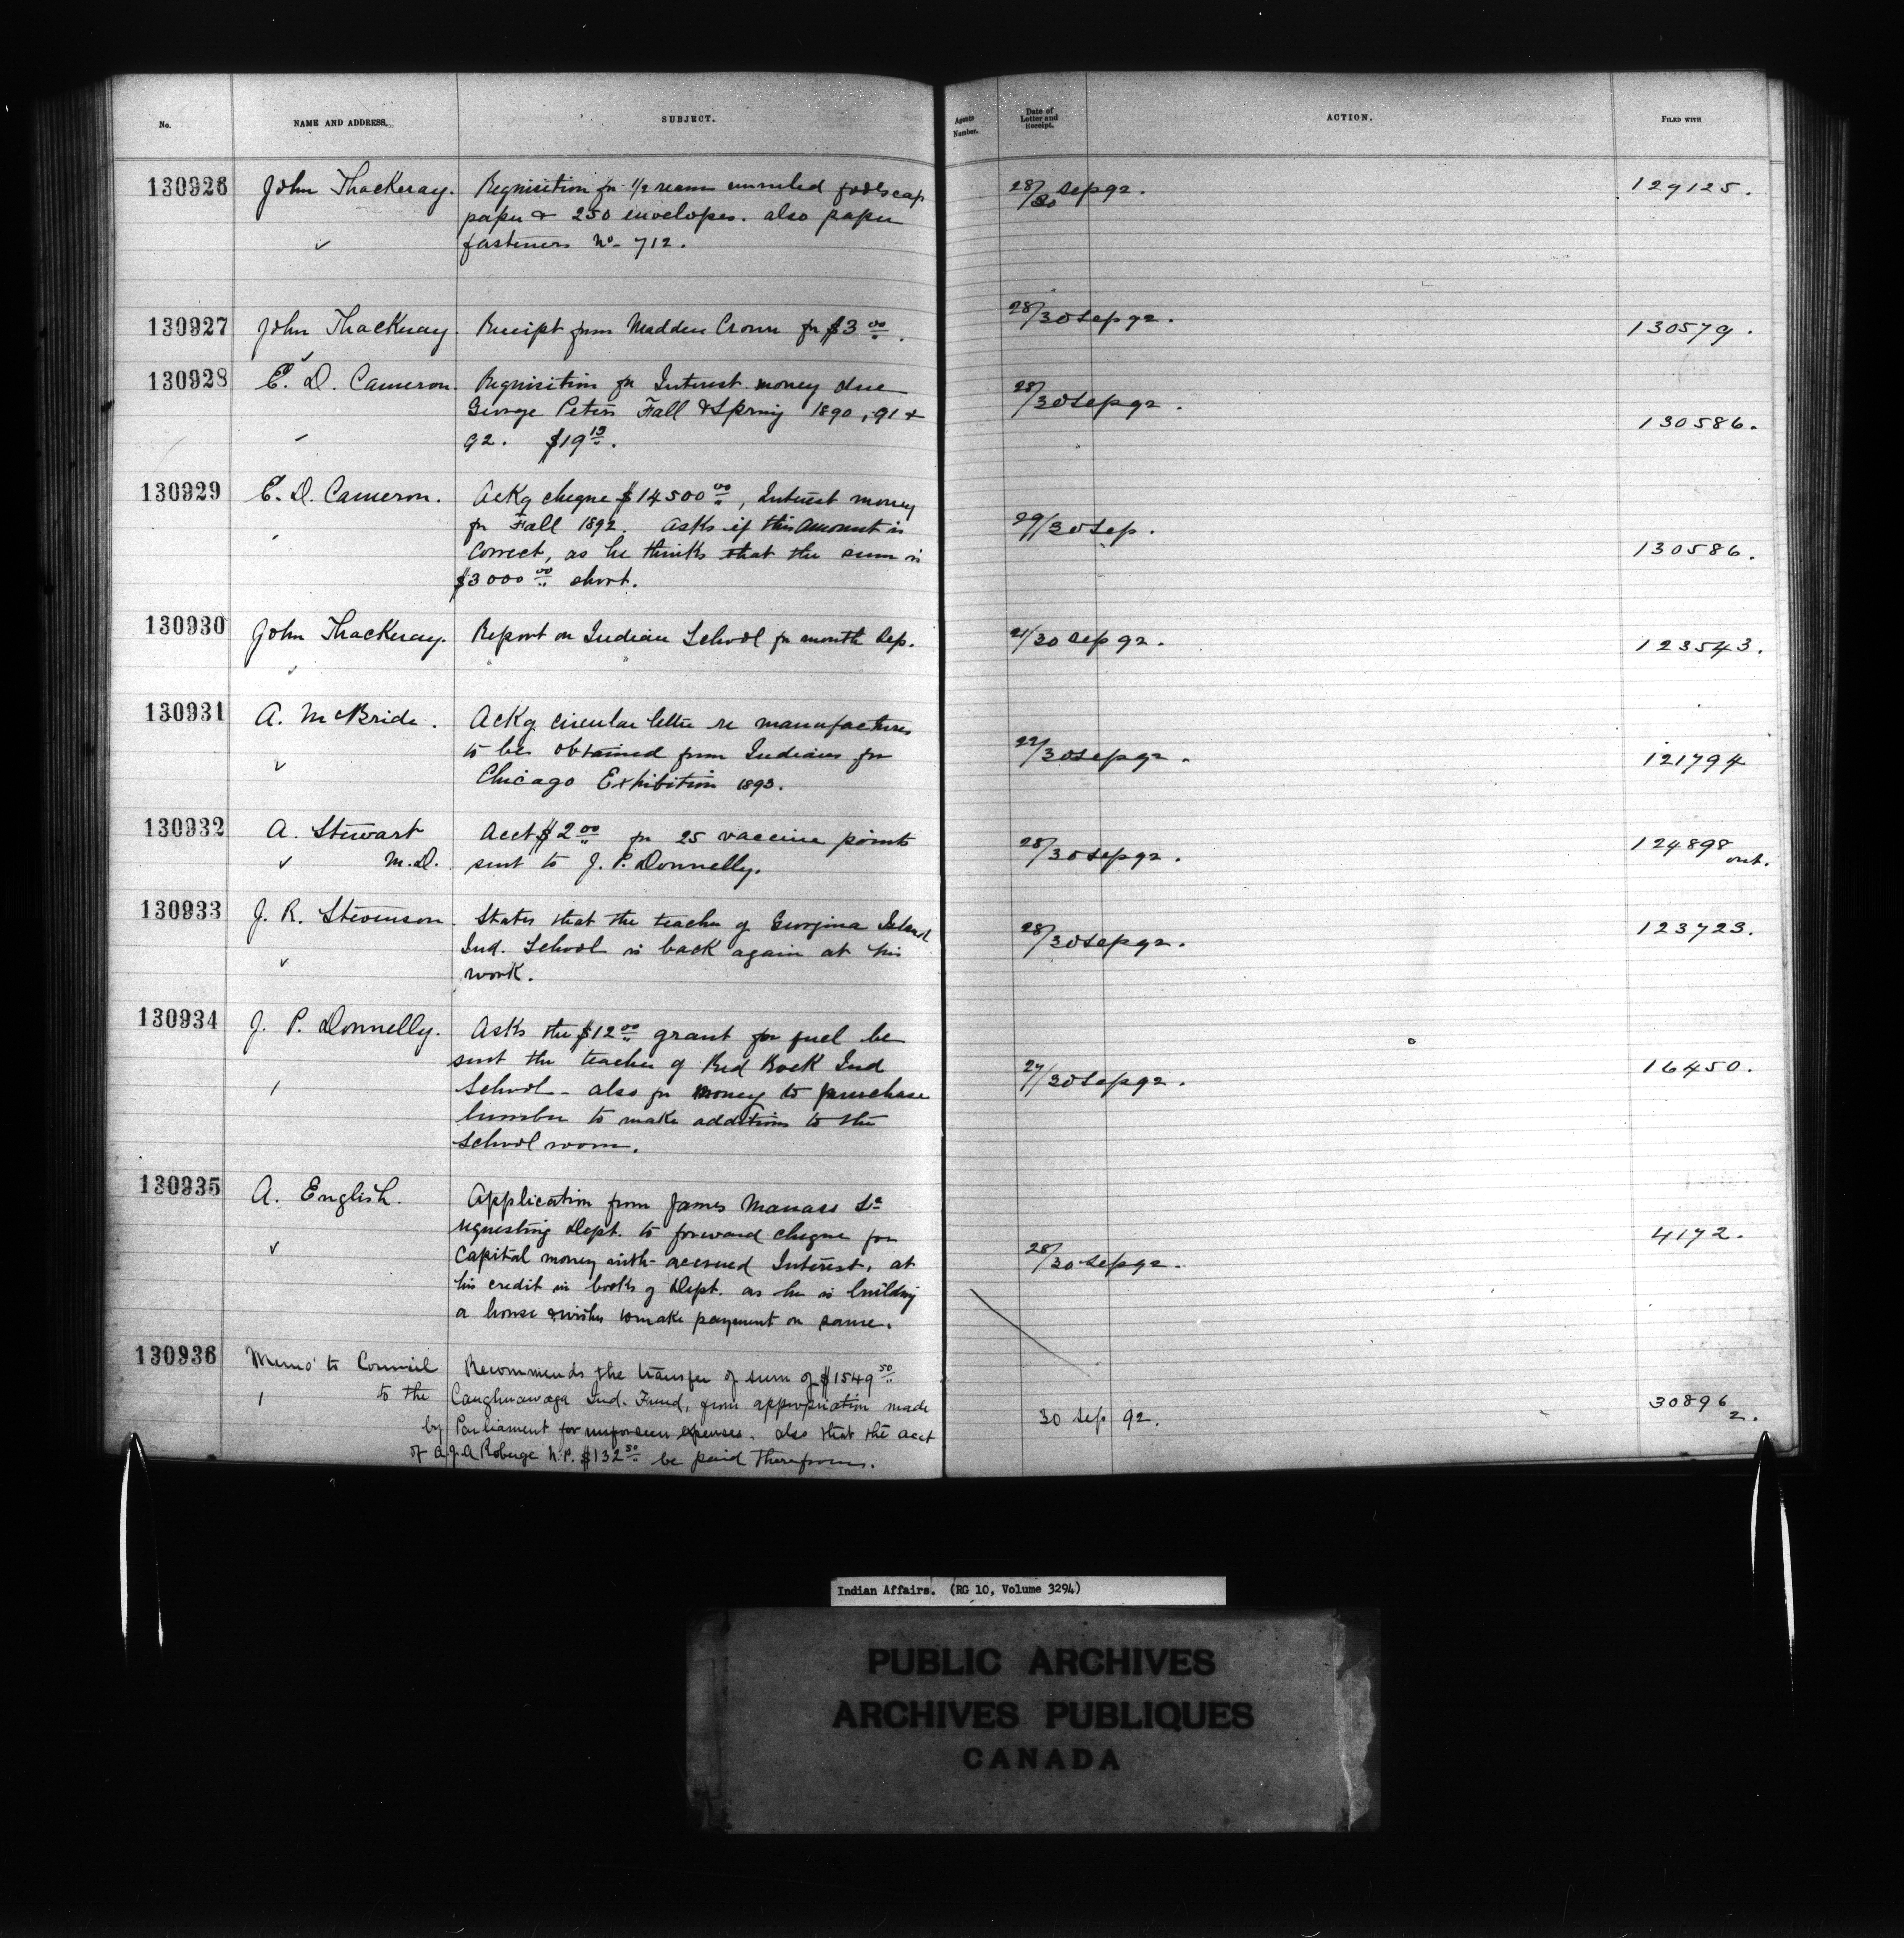 No. NAME AND ADDRESS. SUBJECT. Agents Number. Date of Letter and Receipt. ACTION. FILED WITH
130926 John Thackeray. Requisition for 1/2 ream unruled foolscap 28/30 Sep 92. 129125.
paper & 250 envelopes. also paper
fasteners No 712.
130927 John Thackeray. Receipt from Madden Crown for $3 00. 28/30 Sep 92. 130579.
130928 E. D. Cameron. Requisition for Interest money due 28/30 Sep 92. 130586.
George Peters Fall & Spring 1890, 91 &
92. $19 13.
130929 E. D. Cameron. Ackg cheque $14500 00, Interest money 29/30 Sep. 130586.
for Fall 1892. Asks if this amount is
correct, as he thinks that the sum is
$3000 00 short.
130930 John Thackeray. Report on Indian School for month Sep. 21/30 Sep 92. 123543.
130931 A. McBride. Ackg circular letter re manufactures 22/30 Sep 92. 121794
to be obtained from Indians for
Chicago Exhibition 1893.
130932 A. Stewart Acct $2 00 for 25 vaccine points 28/30 Sep 92. 124898 ont.
M.D. sent to J. P. Donnelly.
130933 J. R. Stevenson. States that the teacher of Georgina Island 28/30 Sep 92. 123723.
Ind. School is back again at his
work.
130934 J. P. Donnelly. Asks the $12 00 grant for fuel be 27/30 Sep 92. 16450.
sent the teacher of Red Rock Ind
School - also for money to purchase
lumber to make additions to the
School room.
130935 A. English. Application from James Manass Sr 28/30 Sep 92. 4172.
requesting Dept. to forward cheque for
Capital money with accrued Interest, at
his credit in books of Dept. as he is building
a house & wishes to make payment on same.
130936 Memo to Council Recommends the transfer of sum of $1549 50 30 Sep 92. 30896 2.
to the Caughnawaga Ind. Fund, from appropriation made
by Parliament for unforseen expenses. also that the acct
of A. J. A Roberge N.P. $132 50 be paid therefrom.
Indian Affairs. (RG 10, Volume 3294)
PUBLIC ARCHIVES
ARCHIVES PUBLIQUES
CANADA